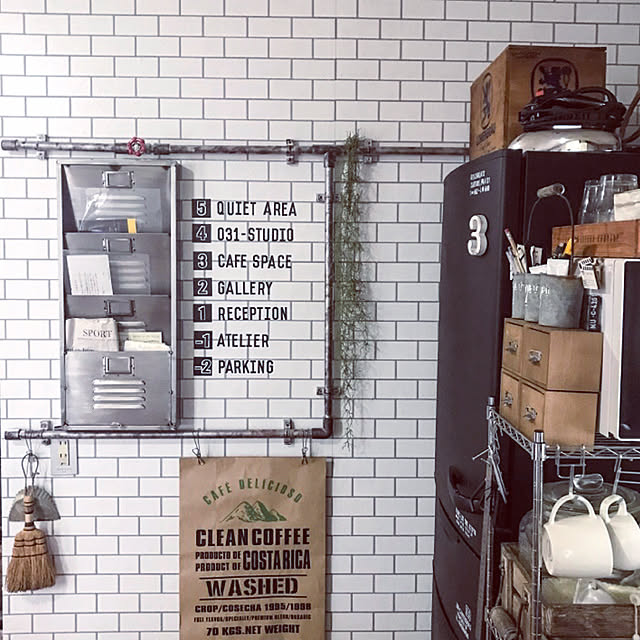 5 QUIET AREA
4 031-STUDIO
3 CAFE SPACE
2 GALLERY
1 RECEPTION
-1 ATELIER
-2 PARKING
SPORT
3
CAFE DELICIOSO
CLEAN COFFEE
PRODUCTO DE
PRODUCT OF COSTA RICA
WASHED
CROP/COSECHA 1995/1996
FULL FLAVOR/SPECIALLY/PREMIUM BLEND/ORGANIC
70 KGS.NET WEIGHT